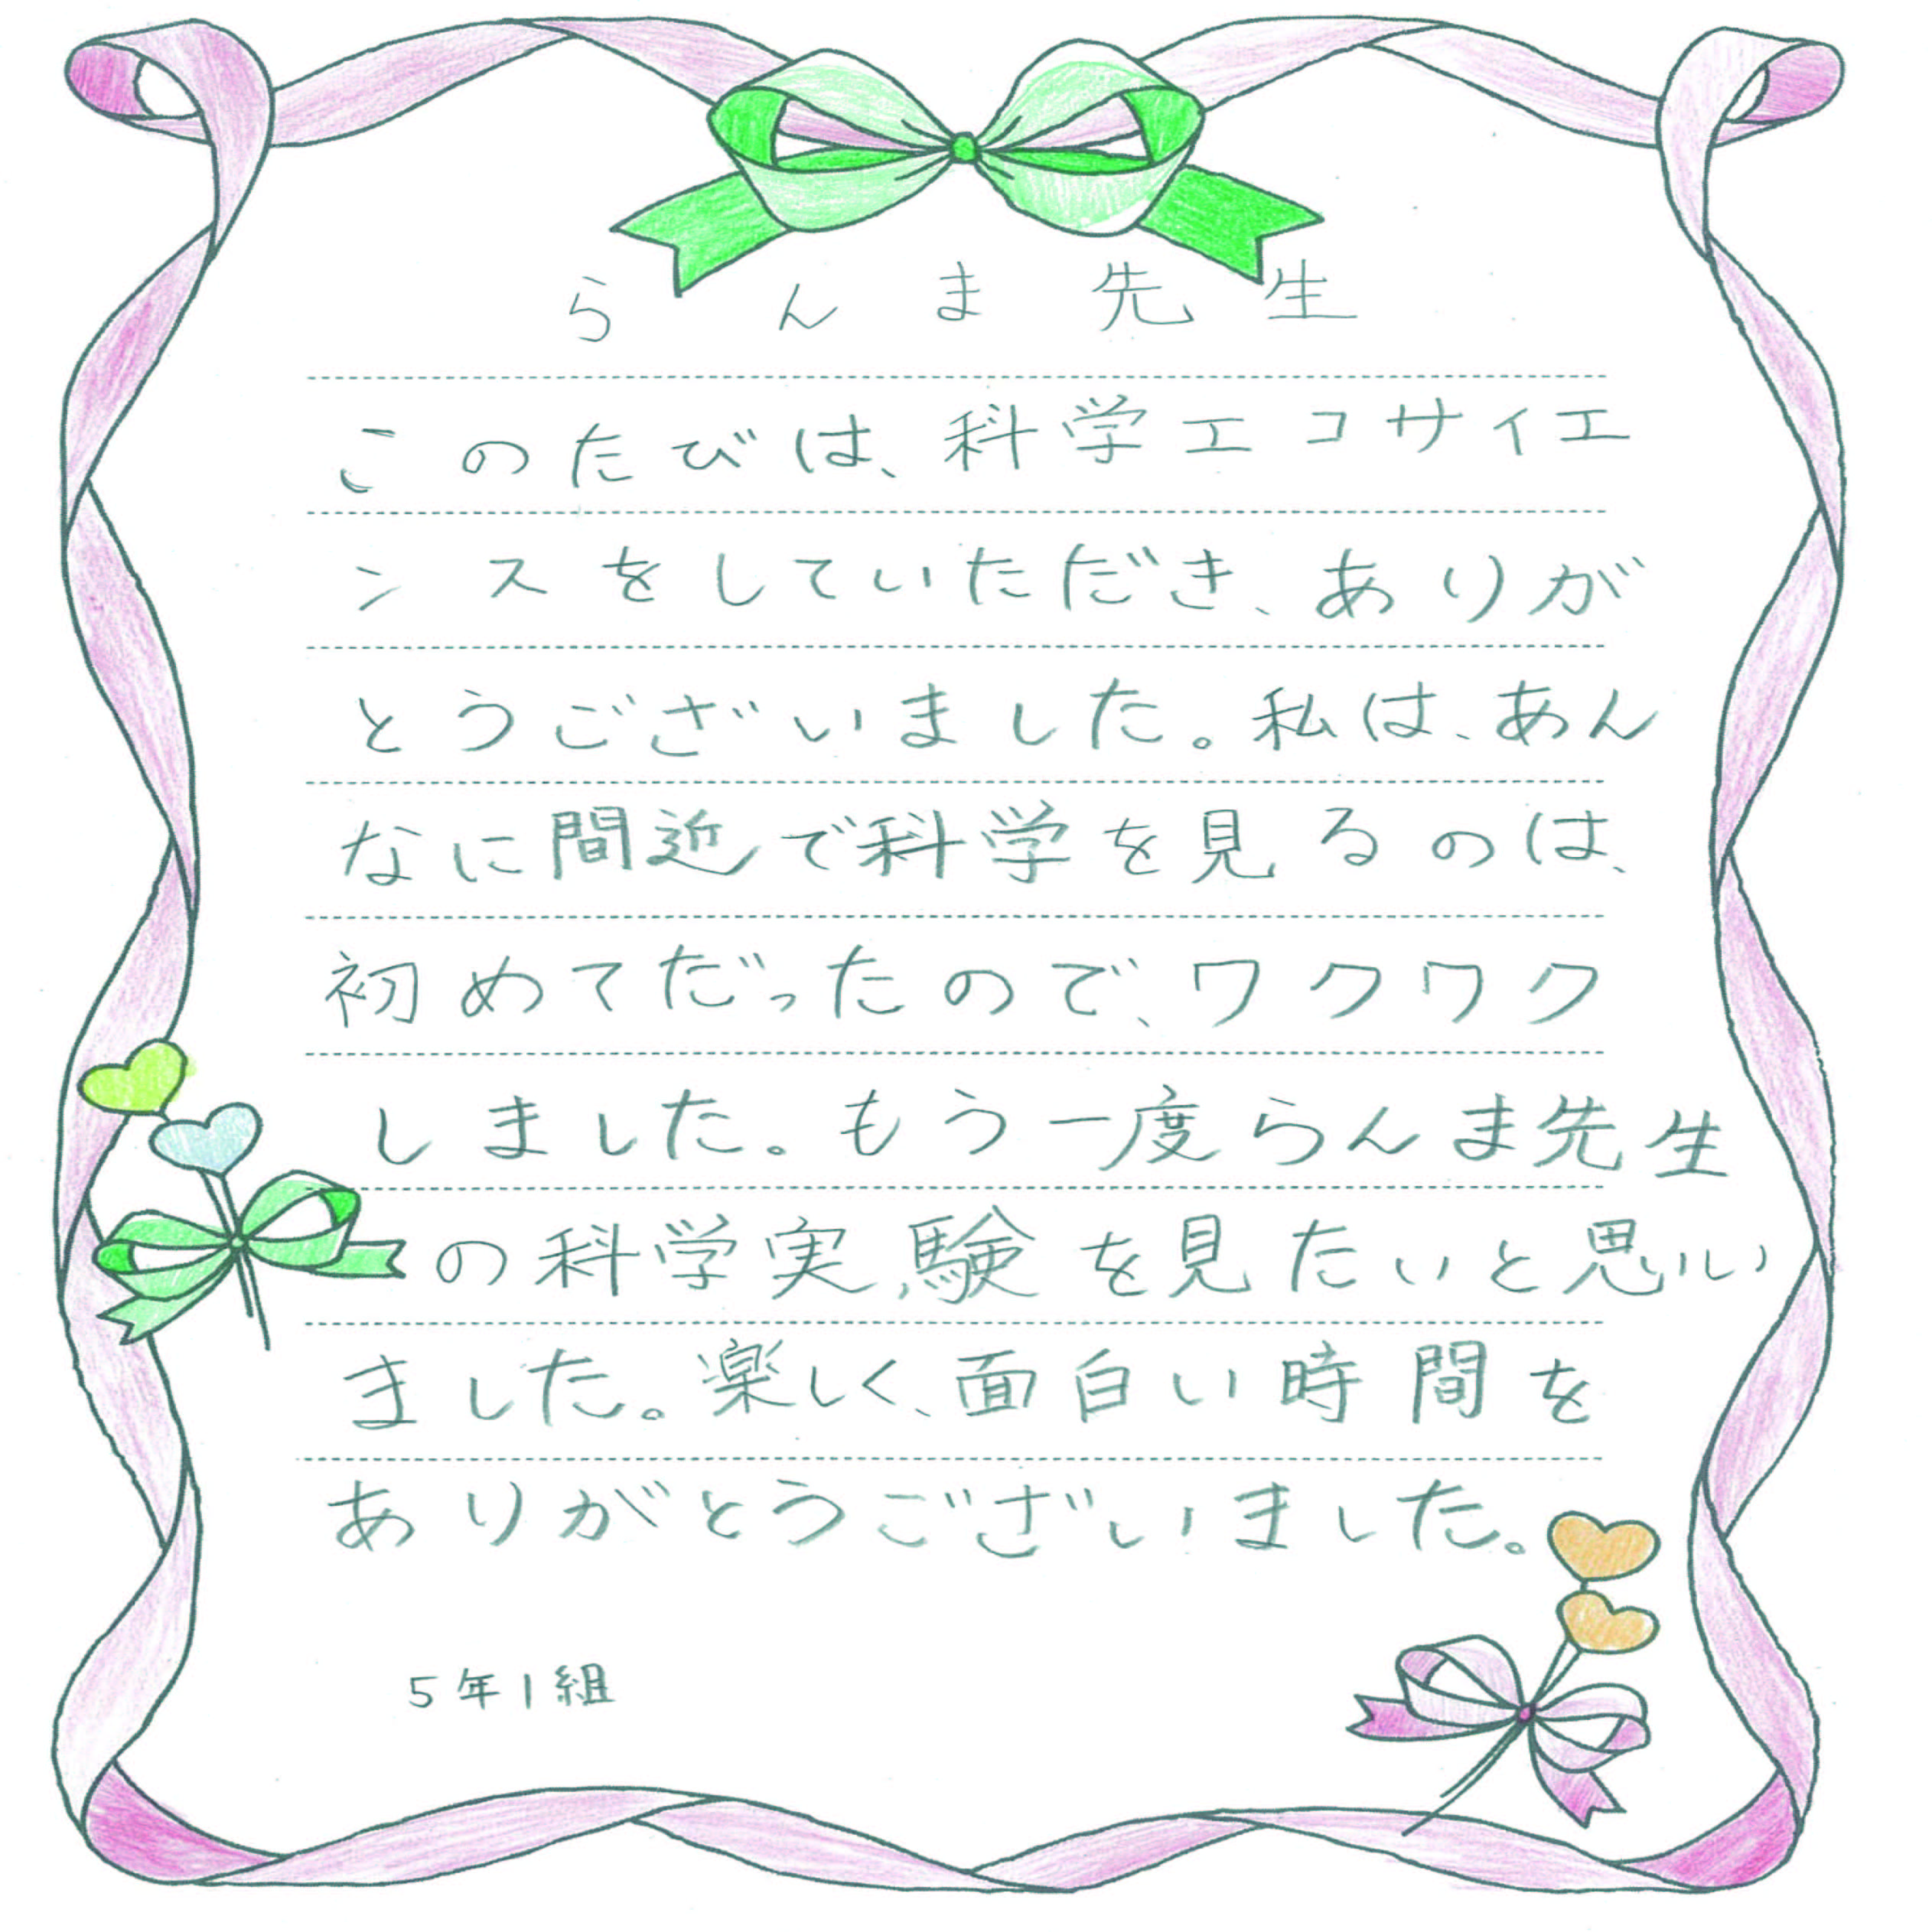 らんま先生
このたびは、科学エコサイエ
ンスをしていただき、ありが
とうございました。私は、あん
なに間近で科学を見るのは、
初めてだったので、ワクワク
しました。もう一度らんま先生
の科学実験を見たいと思い
ました。楽しく、面白い時間を
ありがとうございました。
5年1組